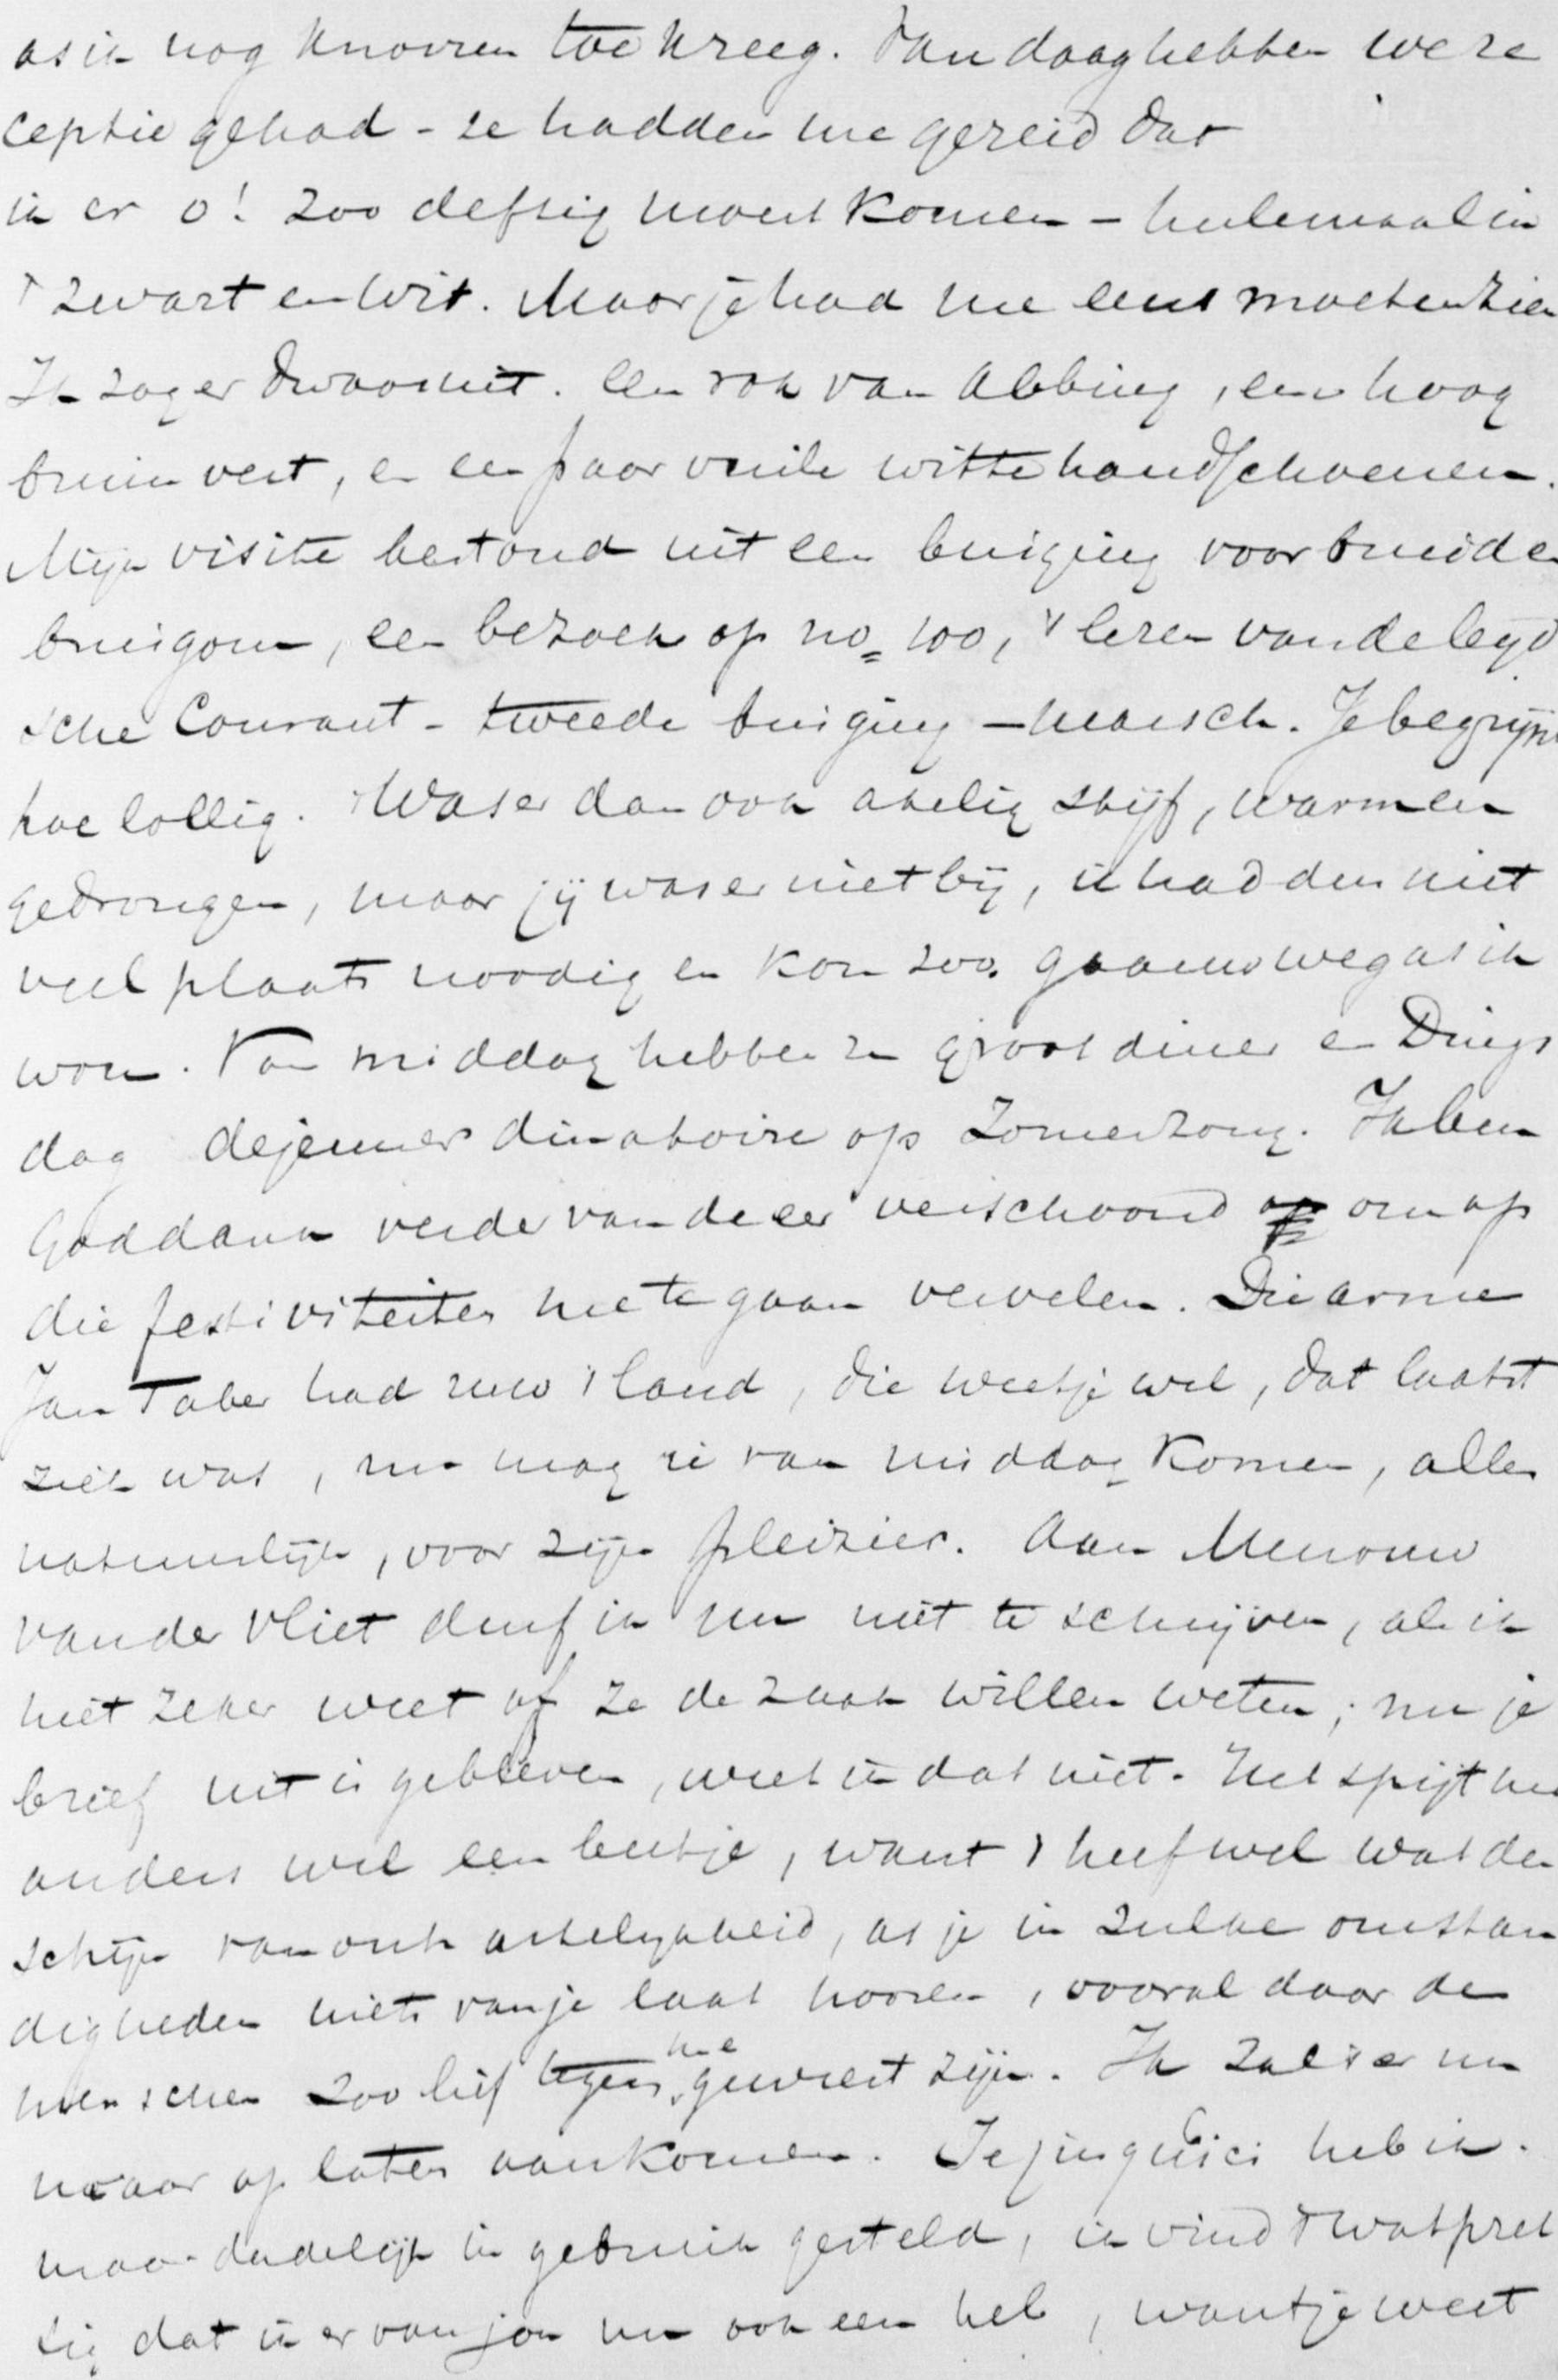 as ik nog knorren toe kreeg. Vandaag hebben we re
ceptie gehad - ze hadden me gezeid dat
ik er o! zoo deftig moest komen - heelemaal in
't zwart en wit. Maar je had me eens moeten zien
Ik zag er dwaas uit. Een rok van Abbing, een hoog
bruin vest, en een paar vuile witte handschoenen.
Mijn visite bestond uit een buiging voor bruid en
bruigom, een bezoek op no 100, 't lezen van de leyd
sche Courant - tweede buiging - marsch. Je begrijpt
hoe lollig. 't Was er dan ook akelig stijf, warm en
gedrongen, maar jij was er niet bij, ik had dus niet
veel plaats noodig en kon zoo gaauw weg as ik
wou. Van middag hebben ze groot diner en Dings
dag dejeuner dinatoire op Zomerzorg. Ik ben
Goddank verder van de eer verschoond om op
die festiviteiten me te gaan vervelen. Die arme
Jan Taber had zoo 't land, die weet je wel, dat laatst
ziek was, nu mag ie van middag komen, alles
natuurlijk, voor zijn pleizier. Aan Mevrouw
van der Vliet durf ik nu niet te schrijven, als ik
niet zeker weet of ze de zaak willen weten; nu je
brief uit is gebleven, weet ik dat niet. Het spijt me
anders wel een beetje, want 't heef wel wat den
schijn van onhartelijkheid, as je in zulke omstan
digheden niets van je laat hooren, vooral daar de
menschen zoo lief tegen me geweest zijn. Ik zal 't er nu
maar op laten aankomen. Je heb ik
maar dadelijk in gebruik gesteld, ik vind 't wat pret
tig dat ik er van jou nu ook een heb, want je weet